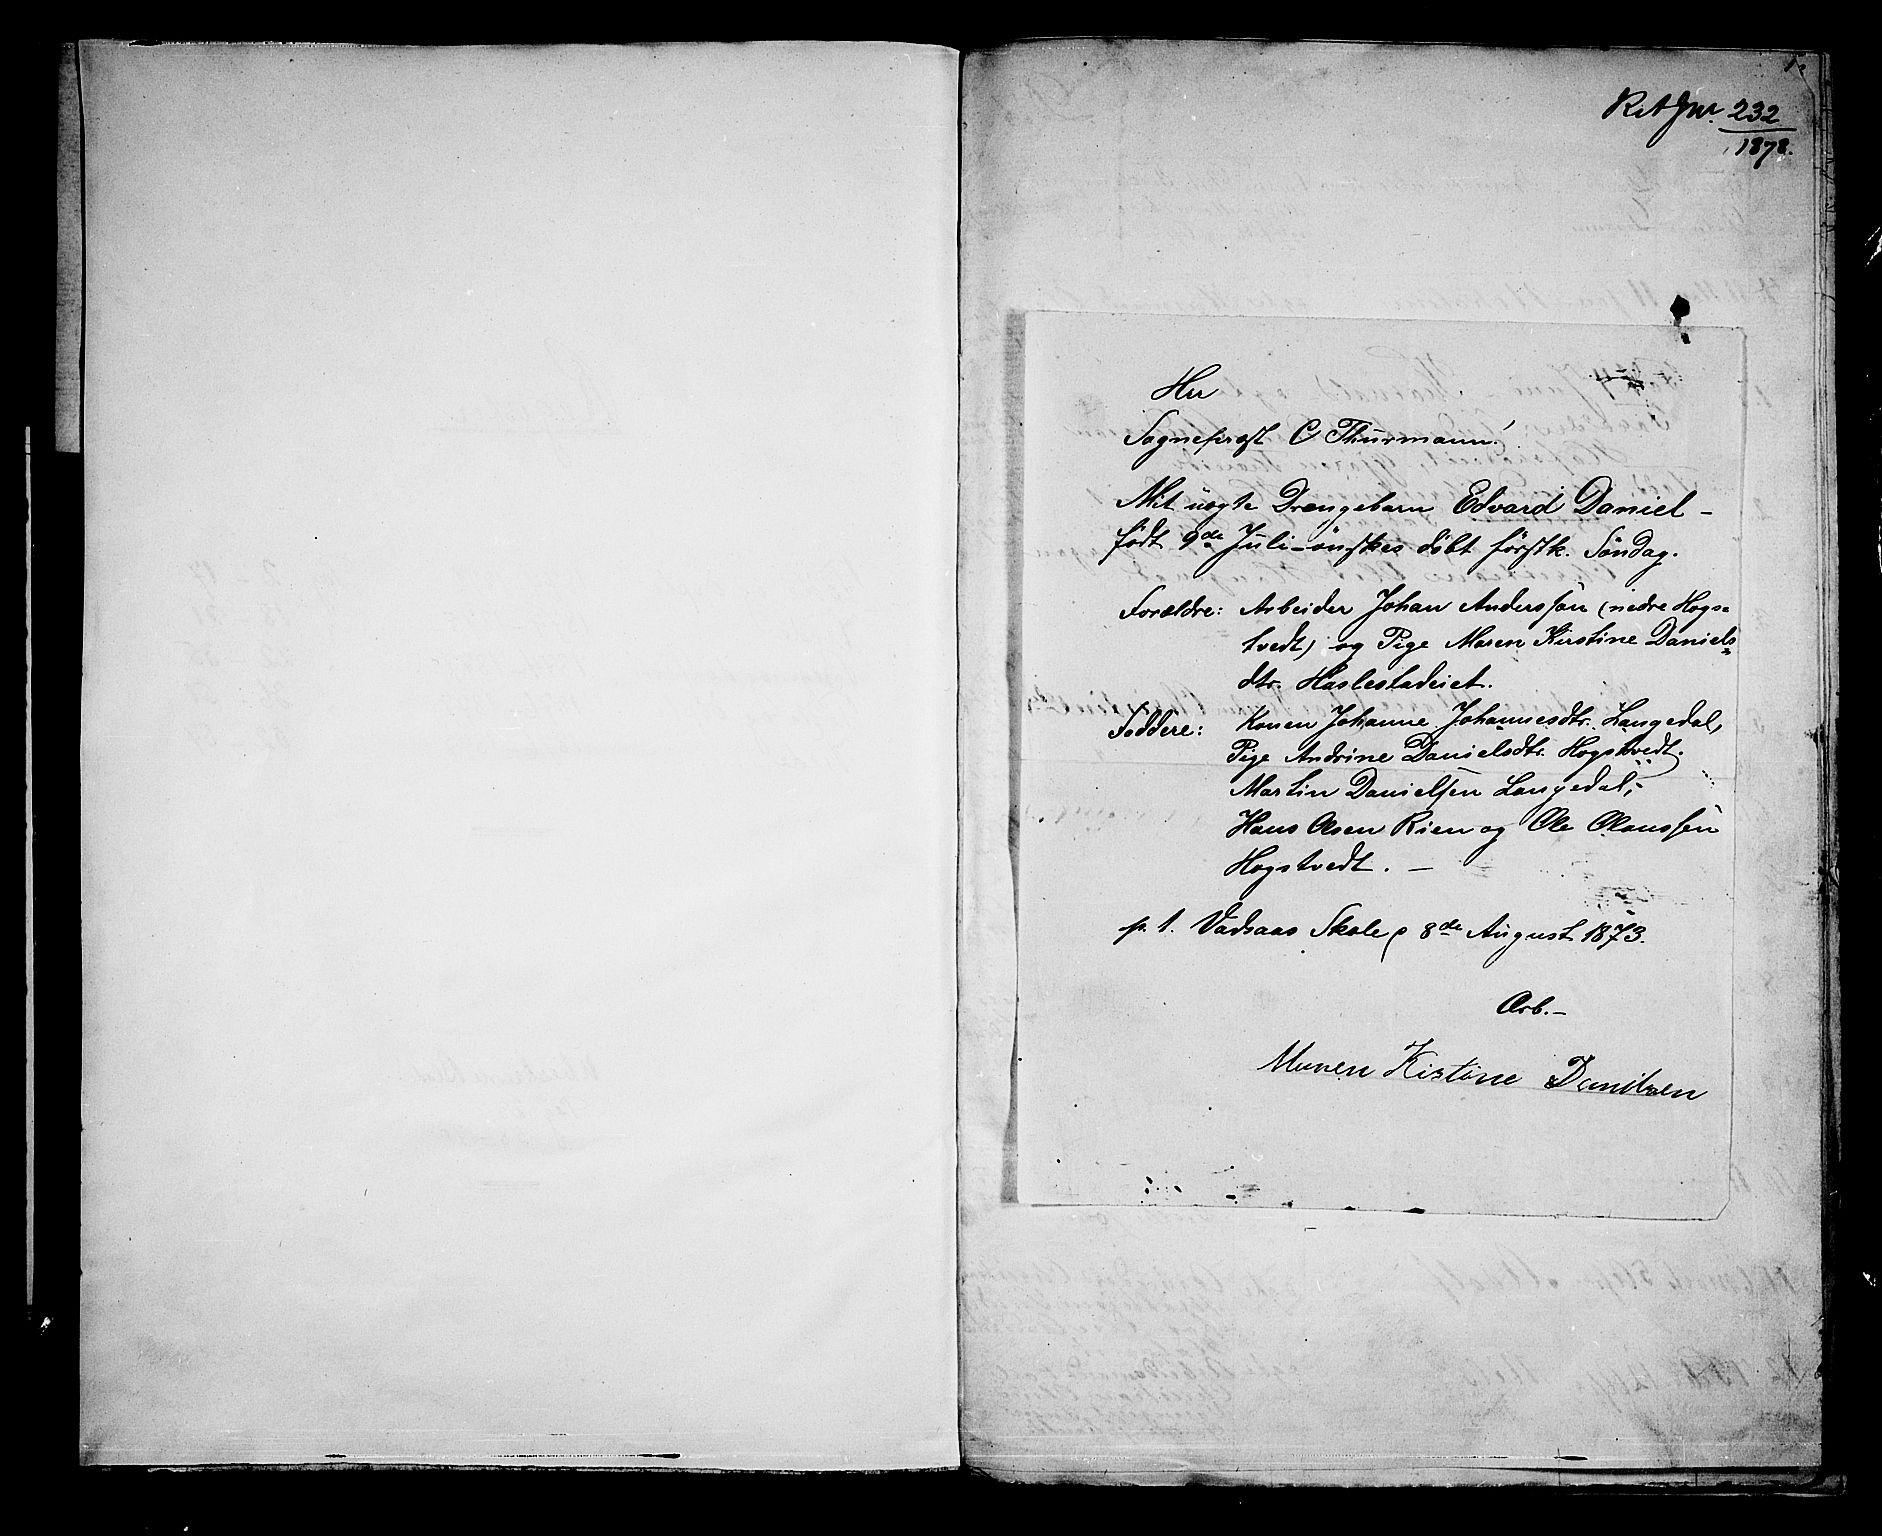 1.
232
1878.
Herr
Sogneprest C Thurmann!
Mit uægte Drengebarn Edvard Daniel –
født 9de Juli – ønskes døbt førstk. Søndag.
Forældre: Arbeider Johan Anderssøn (nedre Hogs-
tvedt) og Pige Maren Kirstine Daniels-
dtr. Haslestadeiet.
Faddere: Konen Johanne Johannesdtr. Langedal,
Pige Andrine Danielsdtr. Hogstvedt.
Martin Danielsen Langedal,
Hans Olsen Rien og Ole Olaussen
Hogstvedt. –
p. t. Vadsaas Skole, 8de August 1873.
Ærb. –
Maren Kistine Danilsen